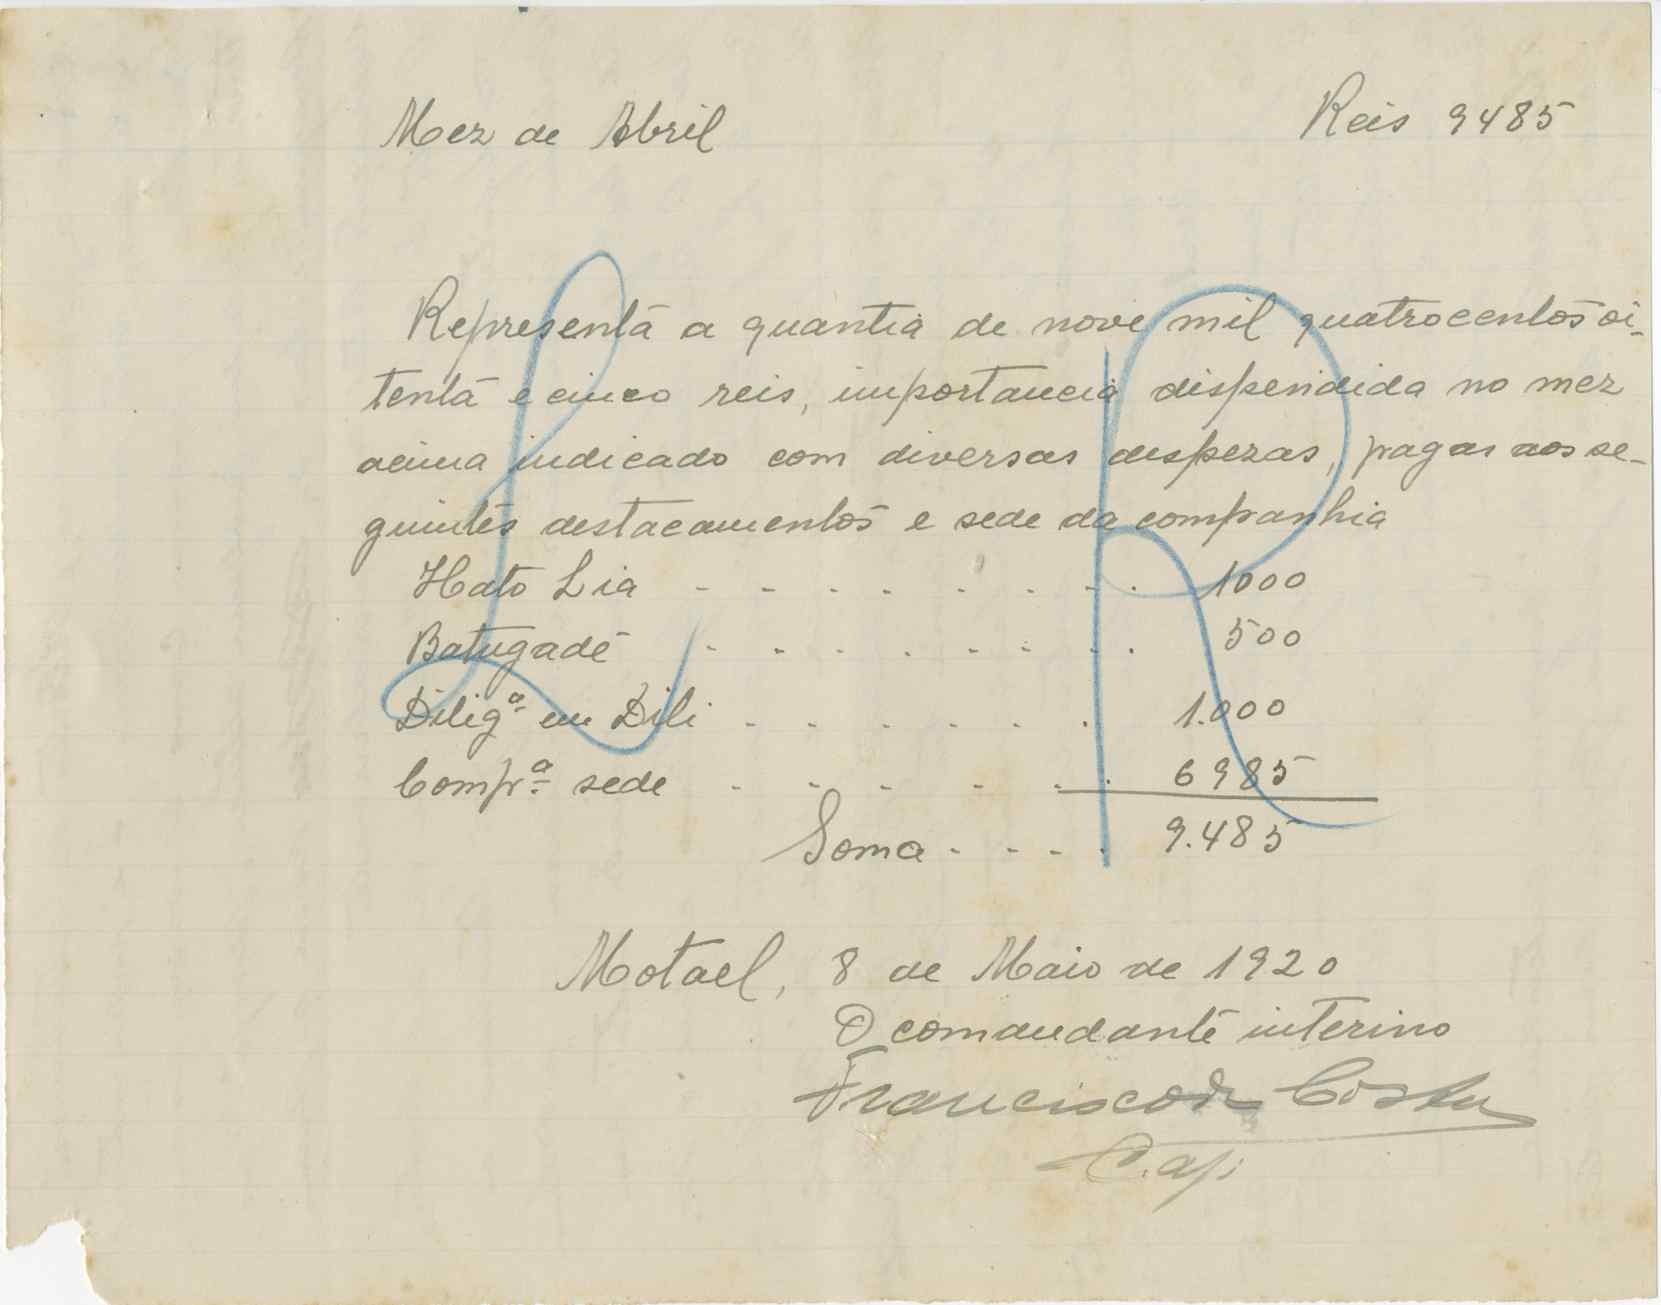 Mez de Abril
Reis 9485
Representa a quantia de nove mil quatrocentos oi-
tenta e cinco reis, importancia dispendida no mez
acima indicado com diversas despezas, pagas aos se-
guintes destacamentos e sede da companhia
Hato Lia - - - - - - - - 1000
Batugadé - - - - - - - 500
Dilig.ª em Dili - - - - - - 1.000
Comp.ª sede - - - - - - 6985
Soma - - - - 9.485
Motael, 8 de Maio de 1920
O comandante interino
Francisco da Costa
Cap.
LR